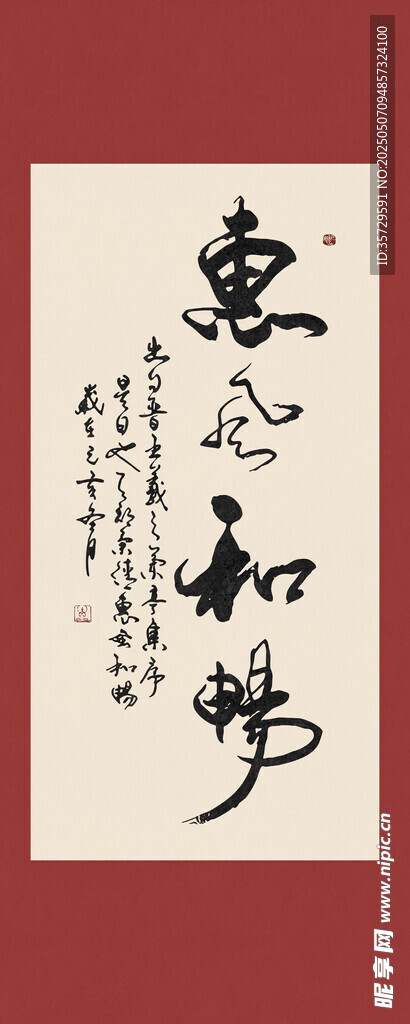 惠风和暢
出自晋王羲之兰亭集序
是日也天朗气清惠风和暢
歲在己亥冬月
ID:35729591 NO:20250507094857324100
昵享网 www.nipic.cn